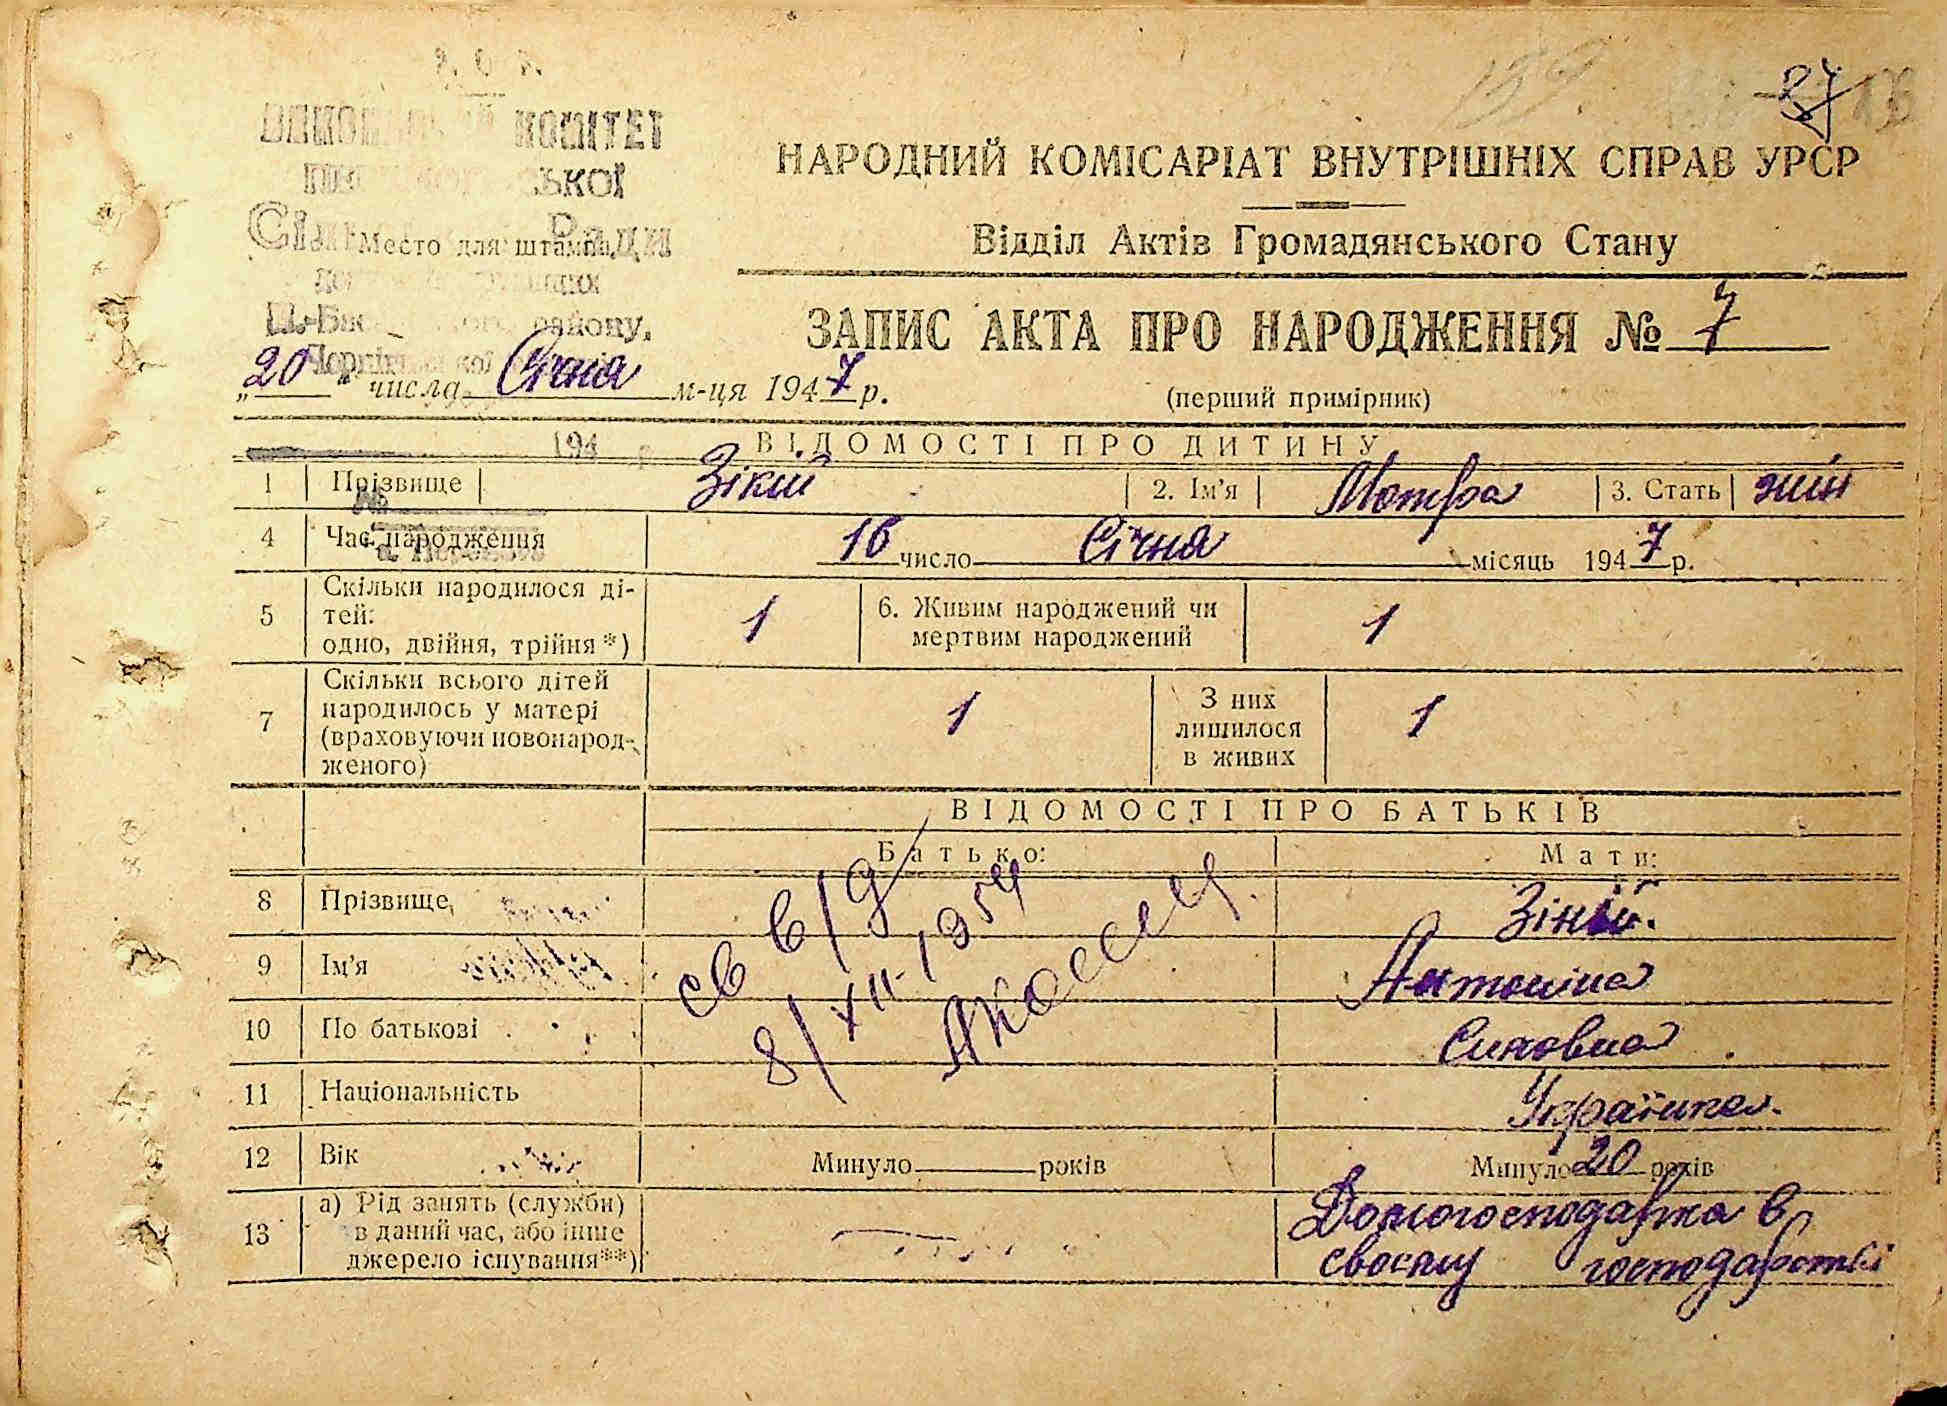 КОМІТЕТ
Ради
Место для штампа
району,
НАРОДНИЙ КОМІСАРІАТ ВНУТРІШНІХ СПРАВ УРСР
Відділ Актів Громадянського Стану
ЗАПИС АКТА ПРО НАРОДЖЕННЯ № 7
„20" числа Січня м-ця 1947 р.
(перший примірник)
194
ВІДОМОСТІ ПРО ДИТИНУ
1 Прізвище Зікій 2. Ім'я Мотра 3. Стать жін
4 Час народження 16 число Січня місяць 1947 р.
5 Скільки народилося ді-
тей:
одно, двійня, трійня*) 1 6. Живим народжений чи
мертвим народжений 1
7 Скільки всього дітей
народилось у матері
(враховуючи новонарод-
женого) 1 З них
лишилося
в живих 1
ВІДОМОСТІ ПРО БАТЬКІВ
Батько: Мати:
8 Прізвище Зікій.
9 Ім'я Антоніна
10 По батькові
11 Національність Українка.
12 Вік Минуло років Минуло 20 років
13 а) Рід занять (служби)
в даний час, або інше
джерело існування**) Домогосподарка в
своєму господарстві
св в/д
8/XII-1954